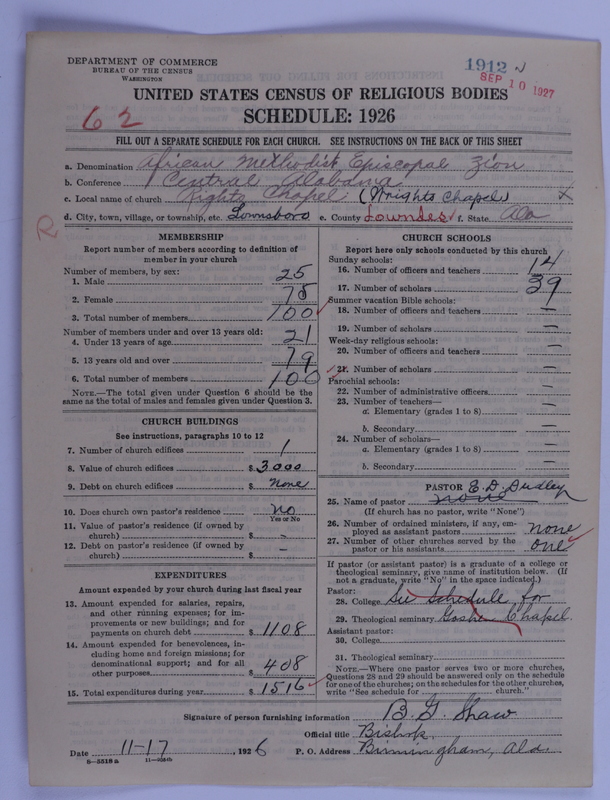 DEPARTMENT OF COMMERCE
BUREAU OF THE CENSUS
WASHINGTON
1912
SEP 10 1927
UNITED STATES CENSUS OF RELIGIOUS BODIES
62
SCHEDULE: 1926
FILL OUT A SEPARATE SCHEDULE FOR EACH CHURCH. SEE INSTRUCTIONS ON THE BACK OF THIS SHEET
a. Denomination African Methodist Episcopal Zion
b. Conference Central Alabama
c. Local name of church Rights Chapel (Wrights Chapel)
d. City, town, village, or township, etc. Lownsboro e. County Lowndes f. State Ala
R
MEMBERSHIP
Report number of members according to definition of member in your church
Number of members, by sex:
1. Male 25
2. Female 75
3. Total number of members 100
Number of members under and over 13 years old:
4. Under 13 years of age 21
5. 13 years old and over 79
6. Total number of members 100
NOTE.—The total given under Question 6 should be the same as the total of males and females given under Question 3.
CHURCH BUILDINGS
See instructions, paragraphs 10 to 12
7. Number of church edifices 1
8. Value of church edifices $ 3000
9. Debt on church edifices $ None
10. Does church own pastor's residence No
Yes or No
11. Value of pastor's residence (if owned by church) $ –
12. Debt on pastor's residence (if owned by church) $ –
EXPENDITURES
Amount expended by your church during last fiscal year
13. Amount expended for salaries, repairs, and other running expenses; for improvements or new buildings; and for payments on church debt $ 1108
14. Amount expended for benevolences, including home and foreign missions; for denominational support; and for all other purposes $ 408
15. Total expenditures during year $ 1516
CHURCH SCHOOLS
Report here only schools conducted by this church
Sunday schools:
16. Number of officers and teachers 14
17. Number of scholars 39
Summer vacation Bible schools:
18. Number of officers and teachers —
19. Number of scholars —
Week-day religious schools:
20. Number of officers and teachers —
21. Number of scholars —
Parochial schools:
22. Number of administrative officers —
23. Number of teachers—
a. Elementary (grades 1 to 8) —
b. Secondary —
24. Number of scholars—
a. Elementary (grades 1 to 8) —
b. Secondary —
PASTOR E. D. Dudley
25. Name of pastor none
(If church has no pastor, write "None")
26. Number of ordained ministers, if any, employed as assistant pastors none
27. Number of other churches served by the pastor or his assistants one
If pastor (or assistant pastor) is a graduate of a college or theological seminary, give name of institution below. (If not a graduate, write "No" in the space indicated.)
Pastor:
28. College See Schedule for
29. Theological seminary Goshen Chapel
Assistant pastor:
30. College
31. Theological seminary
NOTE.—Where one pastor serves two or more churches, Questions 28 and 29 should be answered only on the schedule for one of the churches; on the schedules for the other churches, write "See schedule for church."
Signature of person furnishing information B. G. Shaw
Official title Bishop
Date 11-17, 1926 P. O. Address Birmingham, Ala.